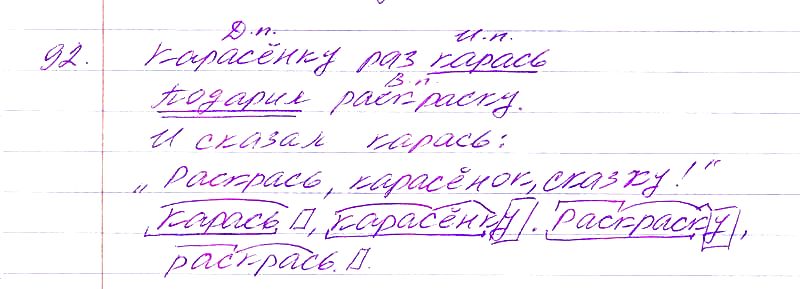 Д.п. И.п.
92. Карасёнку раз карась
В.п.
подарил раскраску.
И сказал карась:
„Раскрась, карасёнок, сказку!"
Карась, карасёнку. Раскраску,
раскрась.